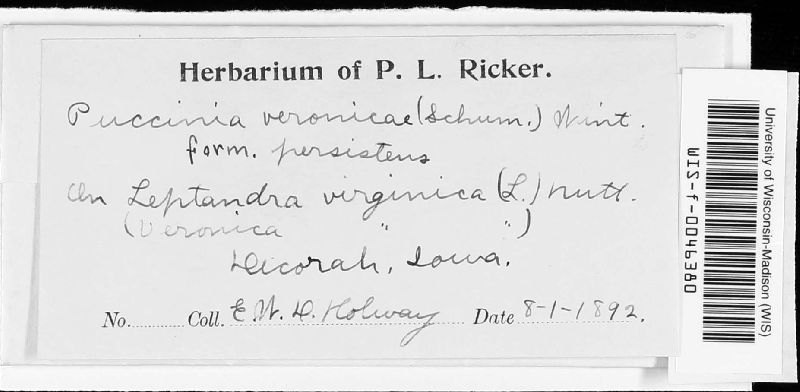 Herbarium of P. L. Ricker.
Puccinia veronicae (Schum.) Wint.
form. persistens
On Leptandra virginica (L.) Nutt.
(Veronica " ")
Decorah, Iowa.
No. Coll. E. W. D. Holway Date 8-1-1892.
University of Wisconsin-Madison (WIS)
WIS-f-0046380